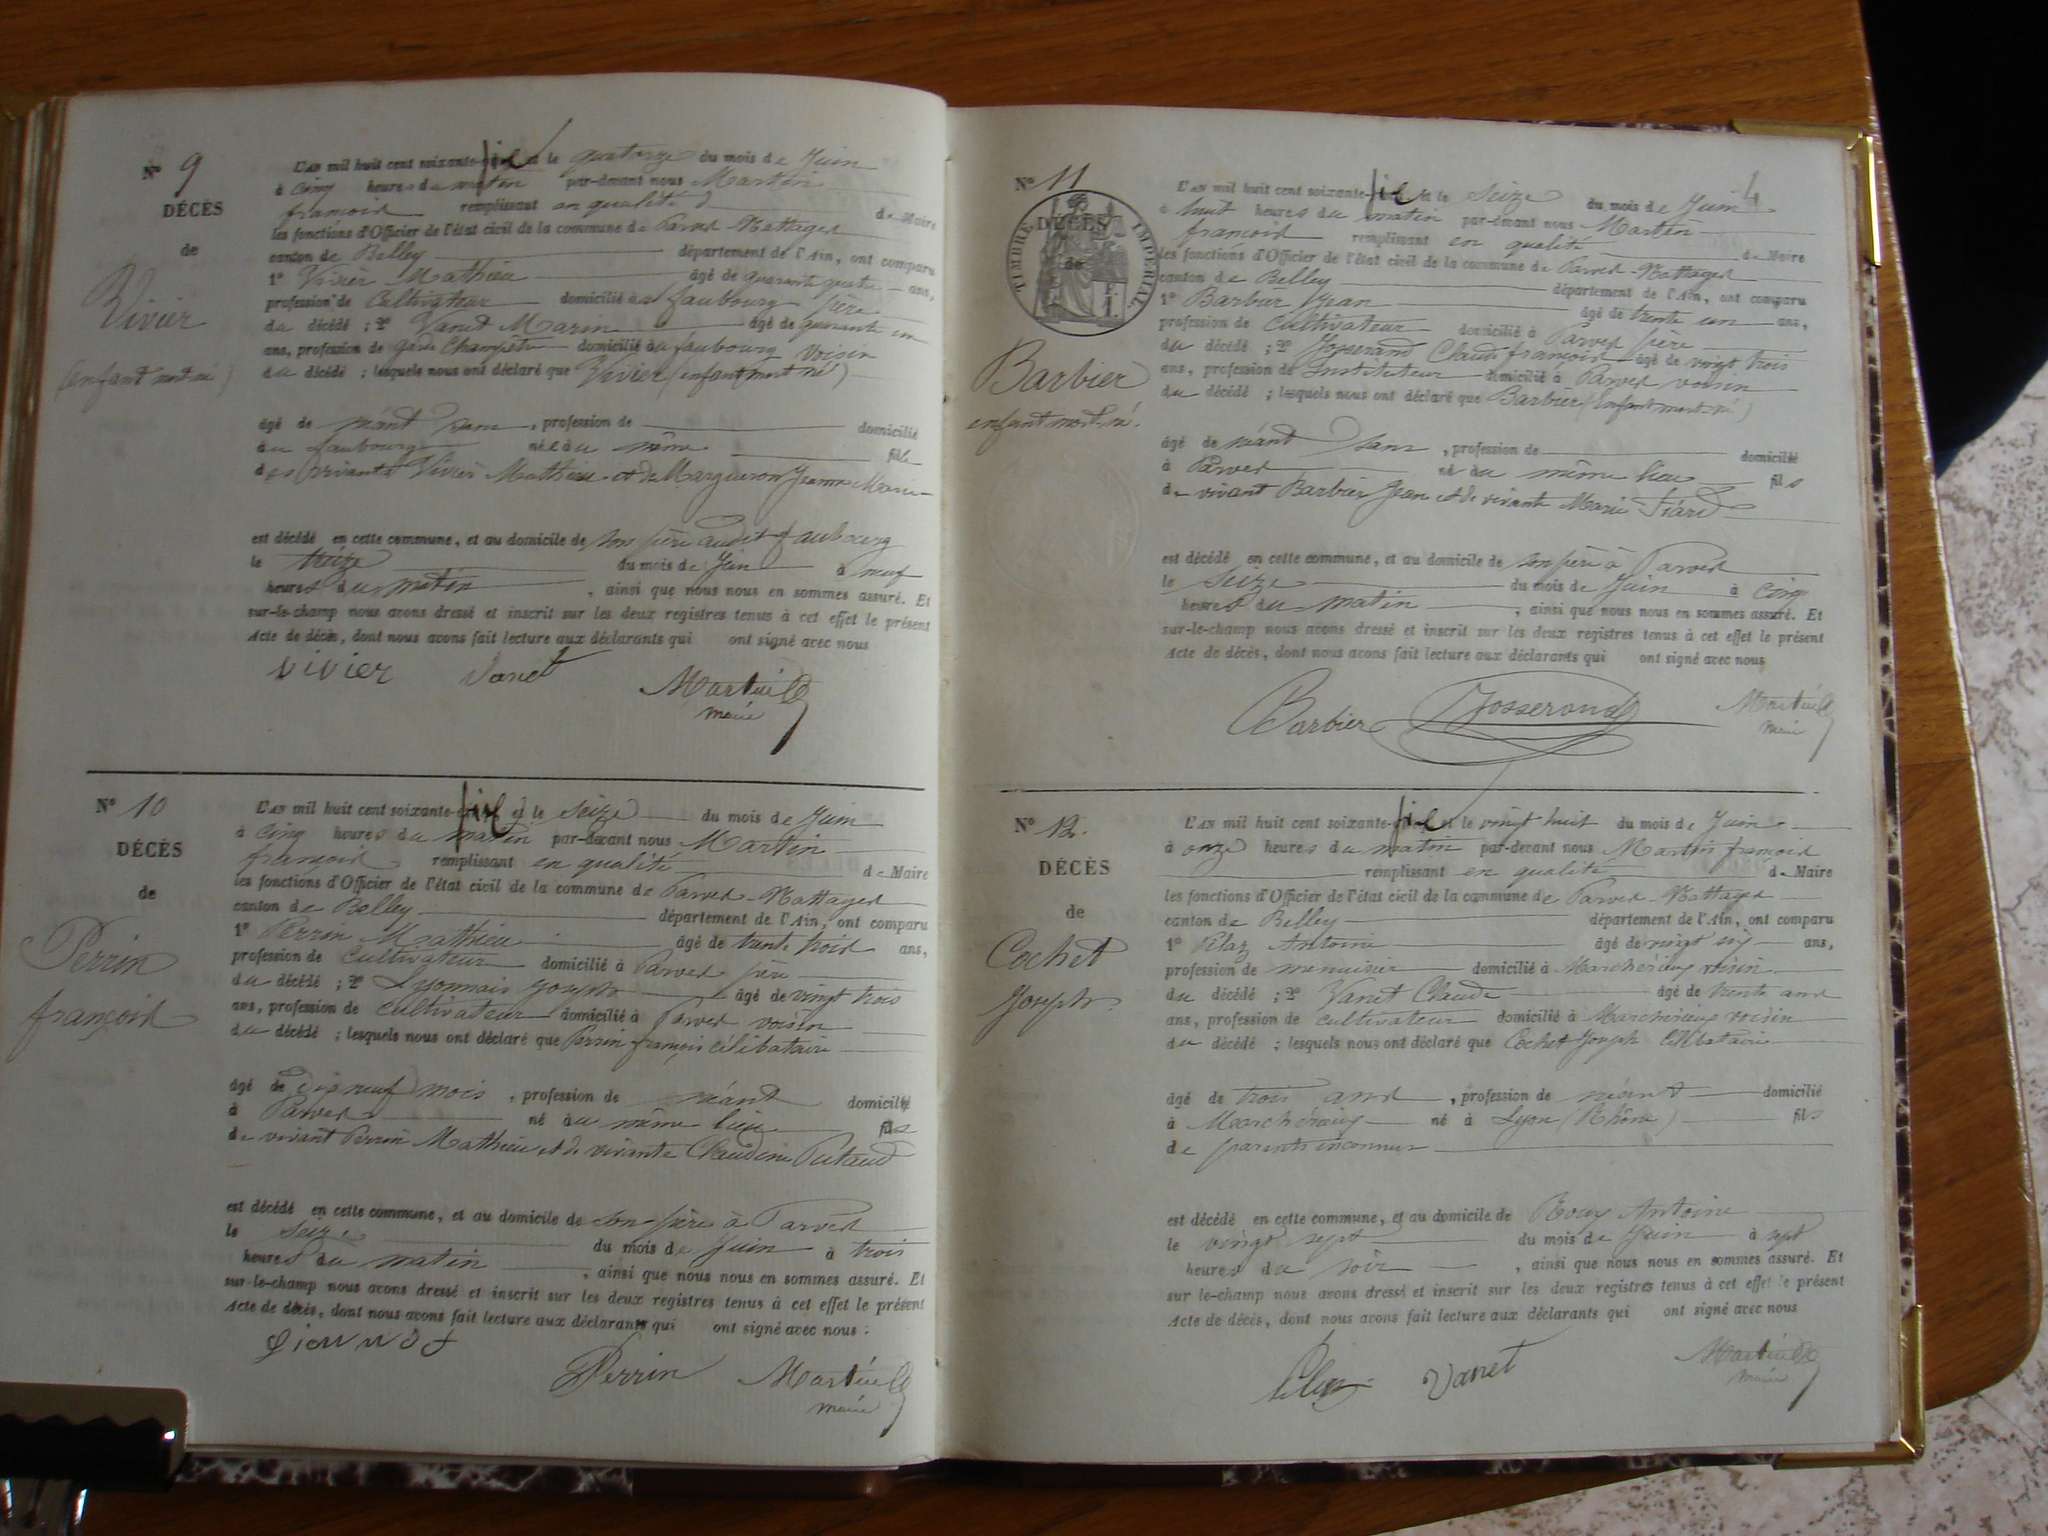 N° 9
DÉCÈS
de
Vivier
(enfant mort né)
L'AN mil huit cent soixante-six et le quatorze du mois de Juin
à cinq heures du matin par-devant nous Martin
françois remplissant en qualité de Maire
les fonctions d'Officier de l'état civil de la commune de Parves-Nattages
canton de Belley département de l'Ain, ont comparu
1° Vivier Mathieu âgé de quarante quatre ans,
profession de Cultivateur domicilié au faubourg père
du décédé ; 2° Vanet Marin âgé de quarante un
ans, profession de garde Champêtre domicilié au faubourg voisin
du décédé ; lesquels nous ont déclaré que Vivier (enfant mort né)
âgé de néant sans , profession de domicilié
au faubourg né au même fils
des vivants Vivier Mathieu et de Margueron Jeanne Marie
est décédé en cette commune, et au domicile de son père audit faubourg
le treize du mois de Juin à neuf
heures du matin , ainsi que nous nous en sommes assuré. Et
sur-le-champ nous avons dressé et inscrit sur les deux registres tenus à cet effet le présent
Acte de décès, dont nous avons fait lecture aux déclarants qui ont signé avec nous
vivier Vanet Martin
maire
N° 10
DÉCÈS
de
Perrin
françois
L'AN mil huit cent soixante-six et le seize du mois de Juin
à cinq heures du matin par-devant nous Martin
françois remplissant en qualité de Maire
les fonctions d'Officier de l'état civil de la commune de Parves-Nattages
canton de Belley département de l'Ain, ont comparu
1° Perrin Mathieu âgé de trente trois ans,
profession de Cultivateur domicilié à Parves père
du décédé ; 2° Lyonnais joseph âgé de vingt trois
ans, profession de cultivateur domicilié à Parves voisin
du décédé ; lesquels nous ont déclaré que Perrin françois célibataire
âgé de dix neuf mois , profession de néant domicilié
à Parves né au même lieu fils
de vivant Perrin Mathieu et de vivante Claudine Putaud
est décédé en cette commune, et au domicile de son père à Parves
le seize du mois de Juin à trois
heures du matin , ainsi que nous nous en sommes assuré. Et
sur-le-champ nous avons dressé et inscrit sur les deux registres tenus à cet effet le présent
Acte de décès, dont nous avons fait lecture aux déclarants qui ont signé avec nous.
Perrin Martin
maire
4
N° 11
DÉCÈS
de
TIMBRE IMPÉRIAL
Barbier
enfant mort né.
L'AN mil huit cent soixante-six et le seize du mois de Juin
à huit heures du matin par-devant nous Martin
françois remplissant en qualité de Maire
les fonctions d'Officier de l'état civil de la commune de Parves-Nattages
canton de Belley département de l'Ain, ont comparu
1° Barbier Jean âgé de trente un ans,
profession de cultivateur domicilié à Parves père
du décédé ; 2° Josserand Claude françois âgé de vingt trois
ans, profession de Instituteur domicilié à Parves voisin
du décédé ; lesquels nous ont déclaré que Barbier (enfant mort né)
âgé de néant sans , profession de domicilié
à Parves né au même lieu fils
de vivant Barbier Jean et de vivante Marie Fiard
est décédé en cette commune, et au domicile de son père à Parves
le seize du mois de Juin à cinq
heures du matin , ainsi que nous nous en sommes assuré. Et
sur-le-champ nous avons dressé et inscrit sur les deux registres tenus à cet effet le présent
Acte de décès, dont nous avons fait lecture aux déclarants qui ont signé avec nous
Barbier Josserand Martin
maire
N° 12.
DÉCÈS
de
Cochet
Joseph
L'AN mil huit cent soixante-six et le vingt huit du mois de Juin
à onze heures du matin par-devant nous Martin françois
remplissant en qualité de Maire
les fonctions d'Officier de l'état civil de la commune de Parves-Nattages
canton de Belley département de l'Ain, ont comparu
1° Antoine âgé de vingt six ans,
profession de menuisier domicilié à voisin
du décédé ; 2° Vanet Claude âgé de trente ans
ans, profession de cultivateur domicilié à voisin
du décédé ; lesquels nous ont déclaré que Cochet Joseph célibataire
âgé de trois ans , profession de néant domicilié
à né à Lyon (Rhône) fils
de parents inconnus
est décédé en cette commune, et au domicile de Antoine
le vingt sept du mois de Juin à sept
heures du soir , ainsi que nous nous en sommes assuré. Et
sur-le-champ nous avons dressé et inscrit sur les deux registres tenus à cet effet le présent
Acte de décès, dont nous avons fait lecture aux déclarants qui ont signé avec nous
Vanet Martin
maire